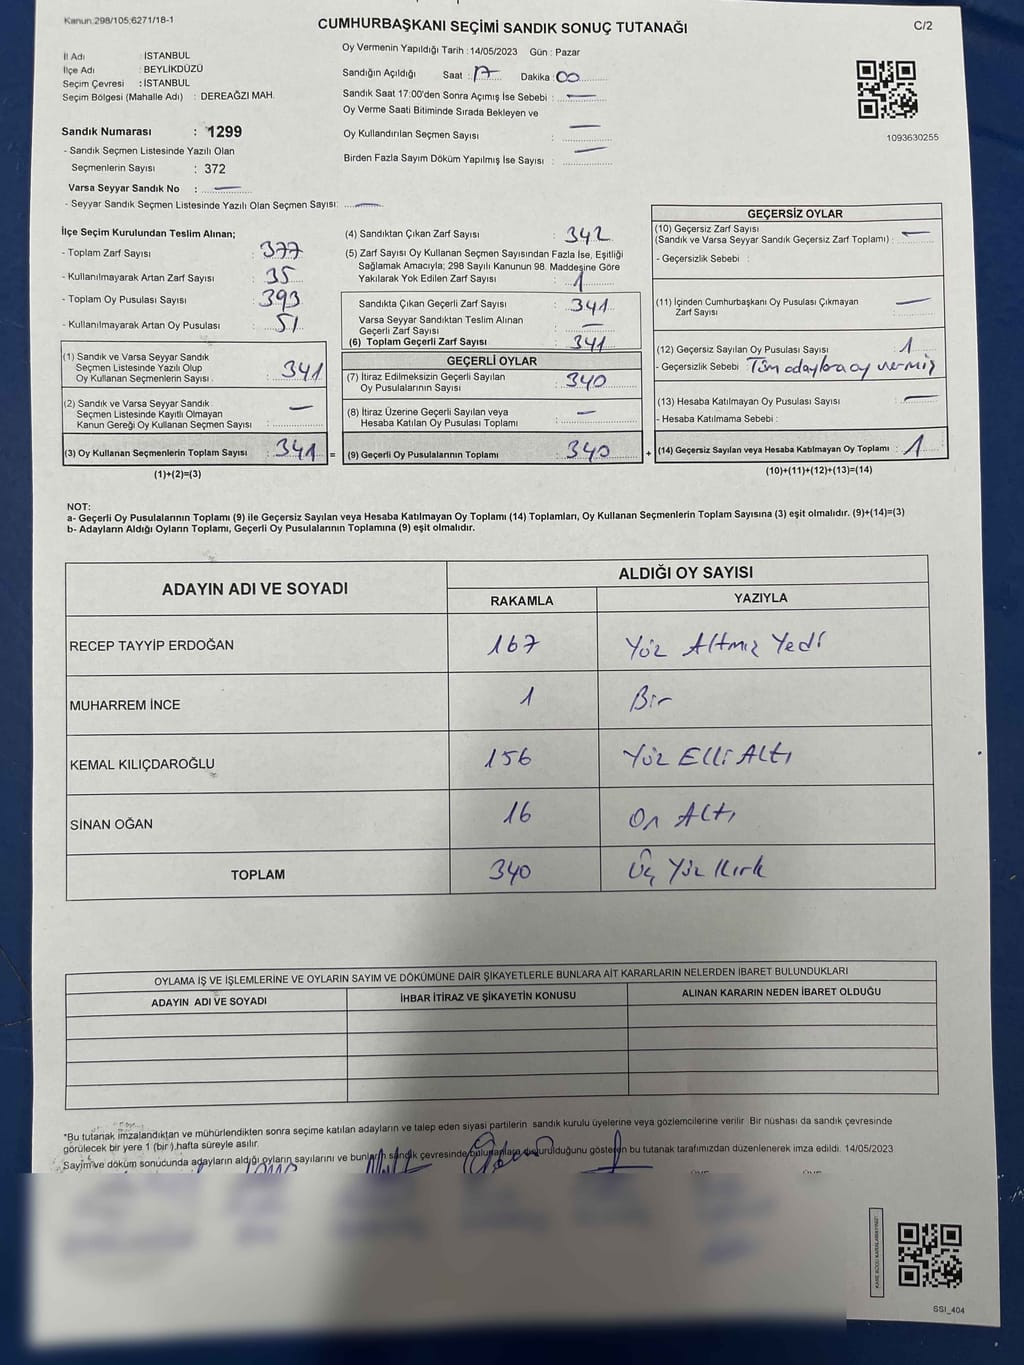 Kanun:298/105;6271/18-1
CUMHURBAŞKANI SEÇİMİ SANDIK SONUÇ TUTANAĞI
C/2
İl Adı : İSTANBUL
İlçe Adı : BEYLİKDÜZÜ
Seçim Çevresi : İSTANBUL
Seçim Bölgesi (Mahalle Adı) : DEREAĞZI MAH.
Oy Vermenin Yapıldığı Tarih :14/05/2023 Gün : Pazar
Sandığın Açıldığı Saat : 17 Dakika : 00
Sandık Saat 17:00'den Sonra Açımış İse Sebebi : —
Oy Verme Saati Bitiminde Sırada Bekleyen ve
Oy Kullandırılan Seçmen Sayısı : —
Birden Fazla Sayım Döküm Yapılmış İse Sayısı : —
1093630255
Sandık Numarası : 1299
- Sandık Seçmen Listesinde Yazılı Olan
Seçmenlerin Sayısı : 372
Varsa Seyyar Sandık No : —
- Seyyar Sandık Seçmen Listesinde Yazılı Olan Seçmen Sayısı: —
İlçe Seçim Kurulundan Teslim Alınan;
- Toplam Zarf Sayısı : 377
- Kullanılmayarak Artan Zarf Sayısı : 35
- Toplam Oy Pusulası Sayısı : 393
- Kullanılmayarak Artan Oy Pusulası : 51
(1) Sandık ve Varsa Seyyar Sandık
Seçmen Listesinde Yazılı Olup
Oy Kullanan Seçmenlerin Sayısı : 341
(2) Sandık ve Varsa Seyyar Sandık
Seçmen Listesinde Kayıtlı Olmayan
Kanun Gereği Oy Kullanan Seçmen Sayısı : —
(3) Oy Kullanan Seçmenlerin Toplam Sayısı : 341 =
(1)+(2)=(3)
(4) Sandıktan Çıkan Zarf Sayısı : 342
(5) Zarf Sayısı Oy Kullanan Seçmen Sayısından Fazla İse, Eşitliği
Sağlamak Amacıyla; 298 Sayılı Kanunun 98. Maddesine Göre
Yakılarak Yok Edilen Zarf Sayısı : 1
Sandıkta Çıkan Geçerli Zarf Sayısı : 341
Varsa Seyyar Sandıktan Teslim Alınan
Geçerli Zarf Sayısı : —
(6) Toplam Geçerli Zarf Sayısı : 341
GEÇERLİ OYLAR
(7) İtiraz Edilmeksizin Geçerli Sayılan
Oy Pusulalarının Sayısı : 340
(8) İtiraz Üzerine Geçerli Sayılan veya
Hesaba Katılan Oy Pusulası Toplamı : —
(9) Geçerli Oy Pusulalarının Toplamı : 340 +
GEÇERSİZ OYLAR
(10) Geçersiz Zarf Sayısı
(Sandık ve Varsa Seyyar Sandık Geçersiz Zarf Toplamı) : —
- Geçersizlik Sebebi :
(11) İçinden Cumhurbaşkanı Oy Pusulası Çıkmayan
Zarf Sayısı : —
(12) Geçersiz Sayılan Oy Pusulası Sayısı : 1
- Geçersizlik Sebebi : Tüm adaylara oy vermiş
(13) Hesaba Katılmayan Oy Pusulası Sayısı : —
- Hesaba Katılmama Sebebi :
(14) Geçersiz Sayılan veya Hesaba Katılmayan Oy Toplamı : 1
(10)+(11)+(12)+(13)=(14)
NOT:
a- Geçerli Oy Pusulalarının Toplamı (9) ile Geçersiz Sayılan veya Hesaba Katılmayan Oy Toplamı (14) Toplamları, Oy Kullanan Seçmenlerin Toplam Sayısına (3) eşit olmalıdır. (9)+(14)=(3)
b- Adayların Aldığı Oyların Toplamı, Geçerli Oy Pusulalarının Toplamına (9) eşit olmalıdır.
ADAYIN ADI VE SOYADI
ALDIĞI OY SAYISI
RAKAMLA YAZIYLA
RECEP TAYYİP ERDOĞAN 167 Yüz Altmış Yedi
MUHARREM İNCE 1 Bir
KEMAL KILIÇDAROĞLU 156 Yüz Elli Altı
SİNAN OĞAN 16 On Altı
TOPLAM 340 Üç Yüz Kırk
OYLAMA İŞ VE İŞLEMLERİNE VE OYLARIN SAYIM VE DÖKÜMÜNE DAİR ŞİKAYETLERLE BUNLARA AİT KARARLARIN NELERDEN İBARET BULUNDUKLARI
ADAYIN ADI VE SOYADI İHBAR İTİRAZ VE ŞİKAYETİN KONUSU ALINAN KARARIN NEDEN İBARET OLDUĞU
*Bu tutanak imzalandıktan ve mühürlendikten sonra seçime katılan adayların ve talep eden siyasi partilerin sandık kurulu üyelerine veya gözlemcilerine verilir Bir nüshası da sandık çevresinde
görülecek bir yere 1 (bir) hafta süreyle asılır.
Sayım ve döküm sonucunda adayların aldığı oyların sayılarını ve bunların sandık çevresinde gösteren bu tutanak tarafımızdan düzenlenerek imza edildi. 14/05/2023
SSI_404